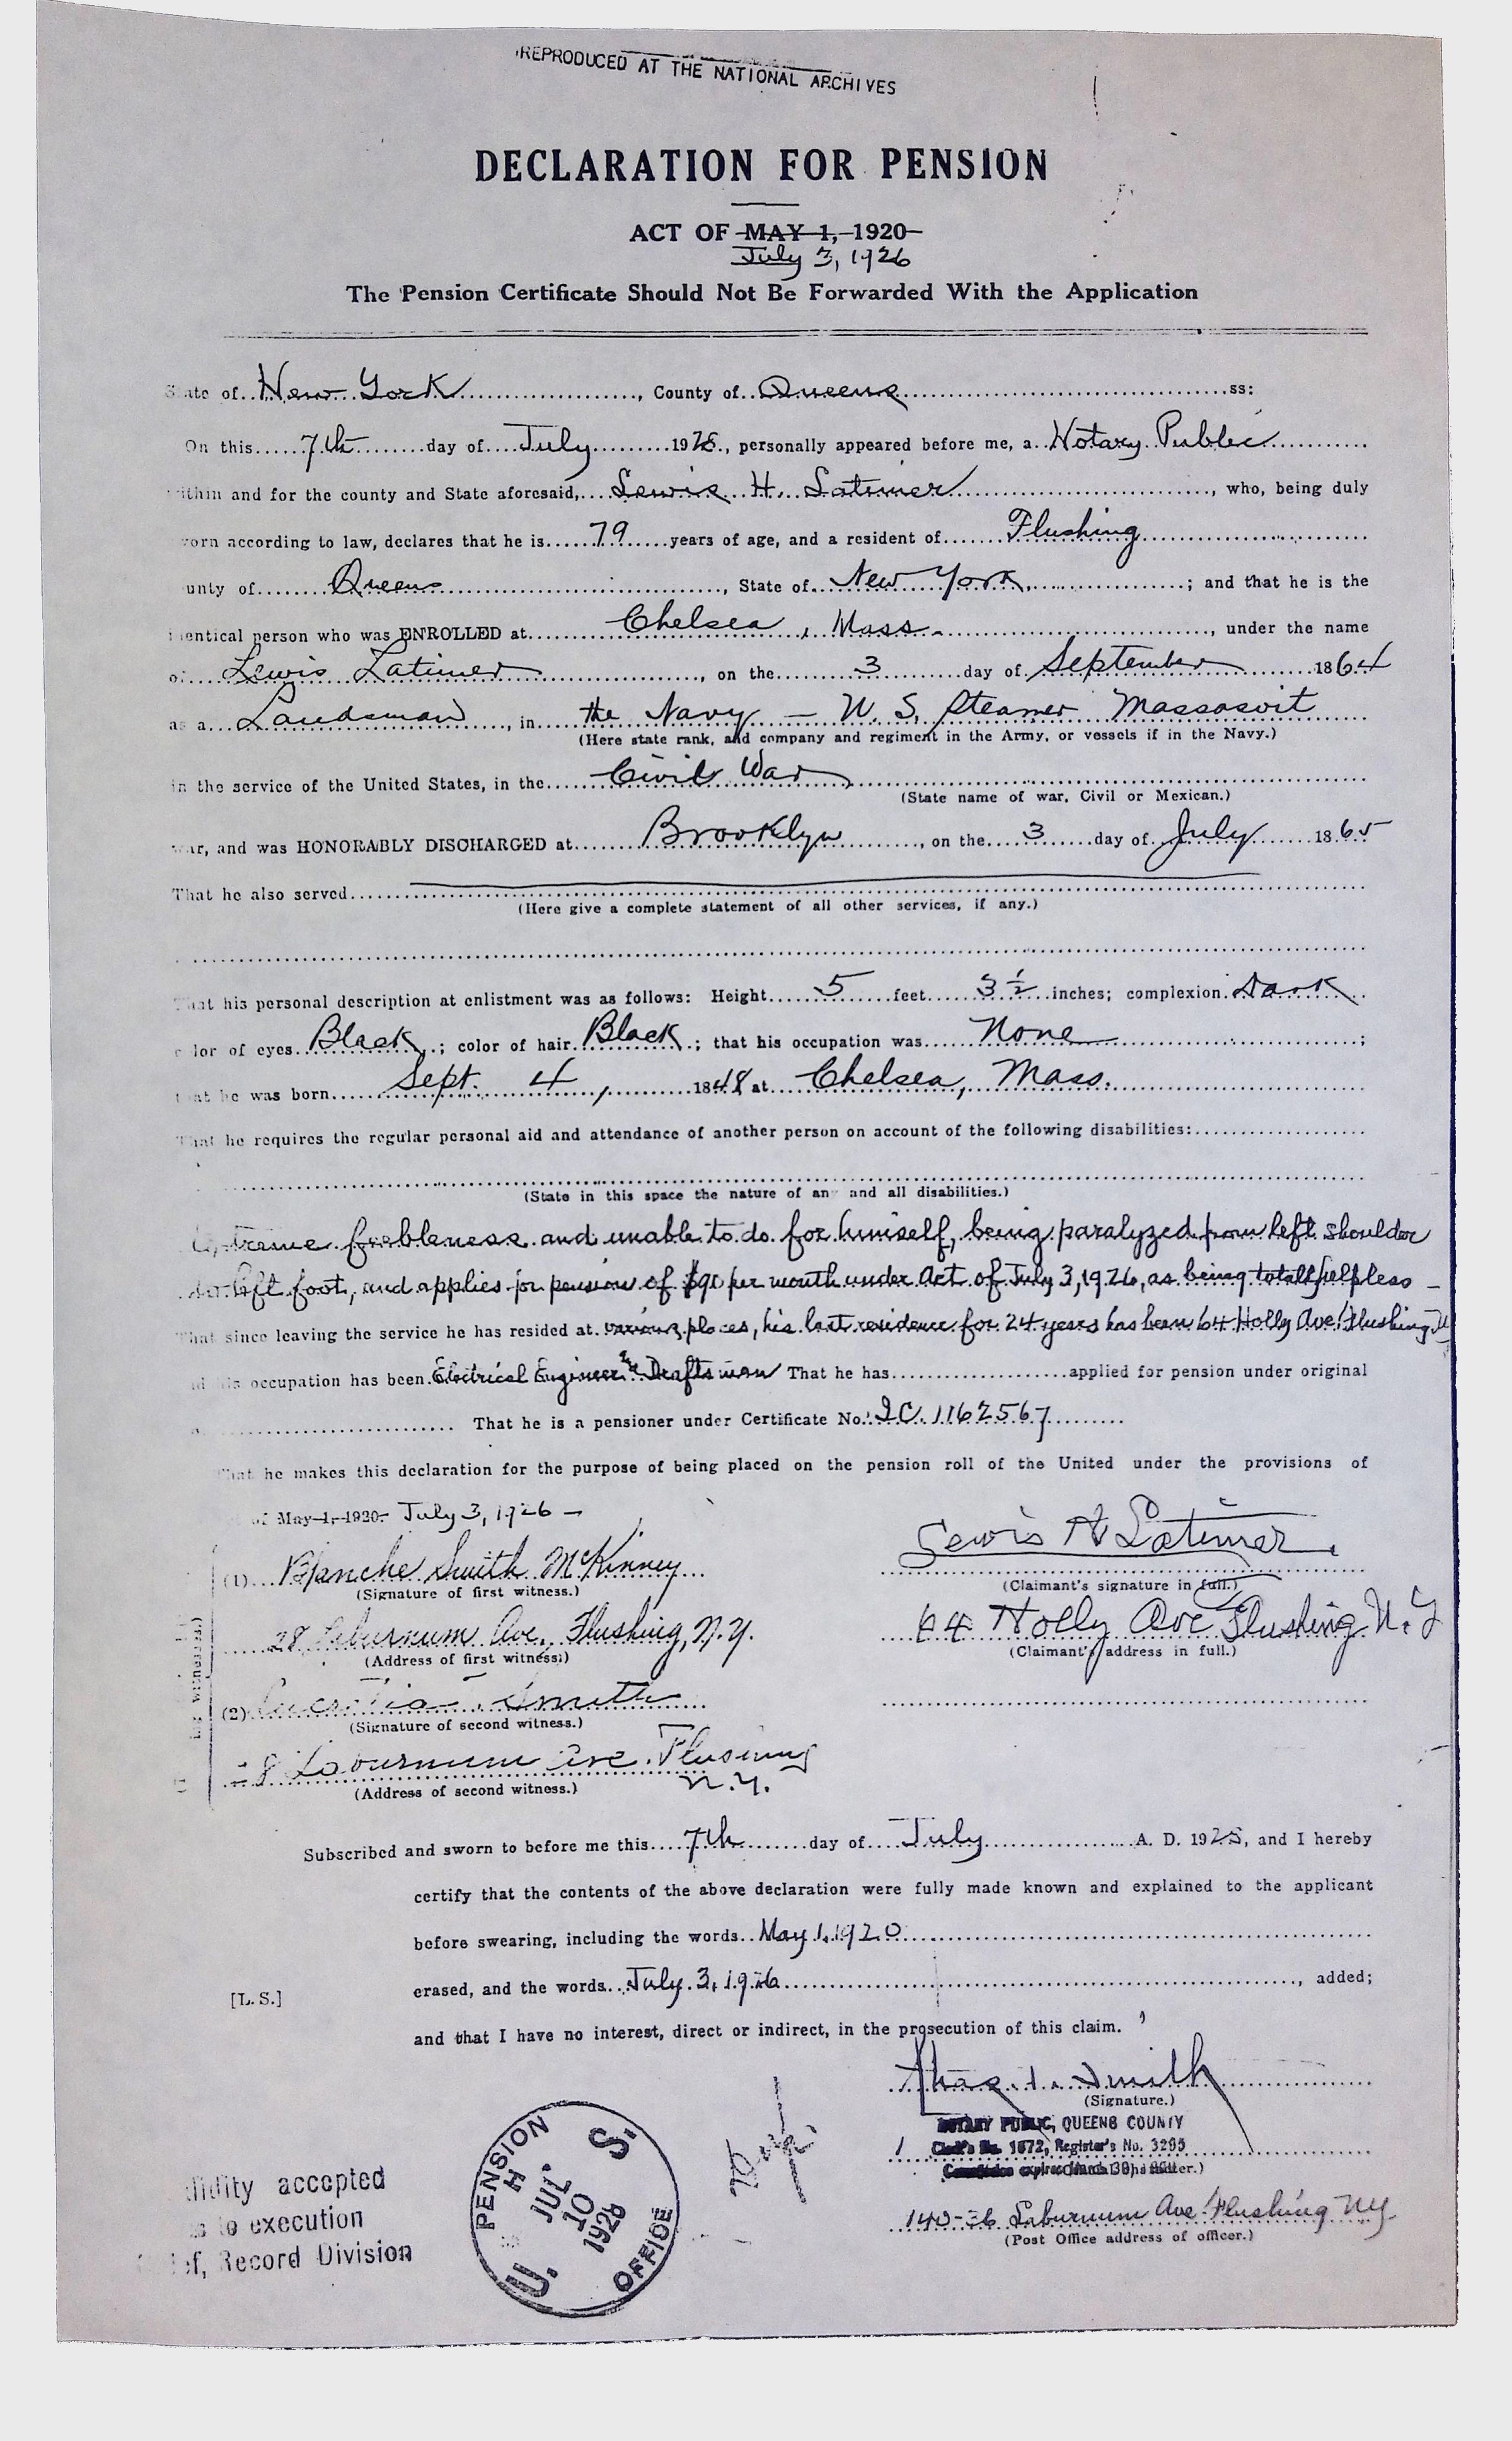 REPRODUCED AT THE NATIONAL ARCHIVES
DECLARATION FOR PENSION
ACT OF MAY 1, 1920
July 3, 1926
The Pension Certificate Should Not Be Forwarded With the Application
State of New York, County of Queens ss:
On this 7th day of July 1928, personally appeared before me, a Notary Public
within and for the county and State aforesaid, Lewis H. Latimer, who, being duly
sworn according to law, declares that he is 79 years of age, and a resident of Flushing
county of Queens, State of New York; and that he is the
identical person who was ENROLLED at Chelsea, Mass., under the name
of Lewis Latimer, on the 3 day of September 1864
as a Landsman, in the Navy — U. S. Steamer Massasoit
(Here state rank, and company and regiment in the Army, or vessels if in the Navy.)
in the service of the United States, in the Civil War
(State name of war, Civil or Mexican.)
war, and was HONORABLY DISCHARGED at Brooklyn, on the 3 day of July 1865
That he also served
(Here give a complete statement of all other services, if any.)
That his personal description at enlistment was as follows: Height 5 feet 3 ½ inches; complexion Dark
color of eyes Black; color of hair Black; that his occupation was None;
that he was born Sept. 4, 1848 at Chelsea, Mass.
That he requires the regular personal aid and attendance of another person on account of the following disabilities:
(State in this space the nature of any and all disabilities.)
Extreme feebleness and unable to do for himself, being paralyzed from left shoulder
to left foot, and applies for pension of $90 per month under Act of July 3, 1926, as being totally helpless —
That since leaving the service he has resided at various places, his last residence for 24 years has been 64 Holly Ave Flushing
and his occupation has been Electrical Engineer & Draftsman That he has applied for pension under original
That he is a pensioner under Certificate No. 1162567
That he makes this declaration for the purpose of being placed on the pension roll of the United under the provisions of
of May 1, 1920. July 3, 1926 —
(1) Blanche Smith McKinney
(Signature of first witness.)
Lewis H Latimer
(Claimant's signature in full.)
28 Laburnum Ave., Flushing, N.Y.
(Address of first witness.)
64 Holly Ave Flushing N.Y
(Claimant's address in full.)
(2) Lucretia Smith
(Signature of second witness.)
28 Laburnum Ave. Flushing
N.Y.
(Address of second witness.)
Subscribed and sworn to before me this 7th day of July A. D. 1928, and I hereby
certify that the contents of the above declaration were fully made known and explained to the applicant
before swearing, including the words May 1, 1920
erased, and the words July 3, 1926, added;
[L. S.]
and that I have no interest, direct or indirect, in the prosecution of this claim.
Smith
(Signature.)
NOTARY PUBLIC, QUEENS COUNTY
Clerk's No. 1672, Register's No. 3295
Commission expires March 30,
Laburnum Ave Flushing NY
(Post Office address of officer.)
U. S. PENSION OFFICE
JUL 10 1928
validity accepted
as to execution
Chief, Record Division